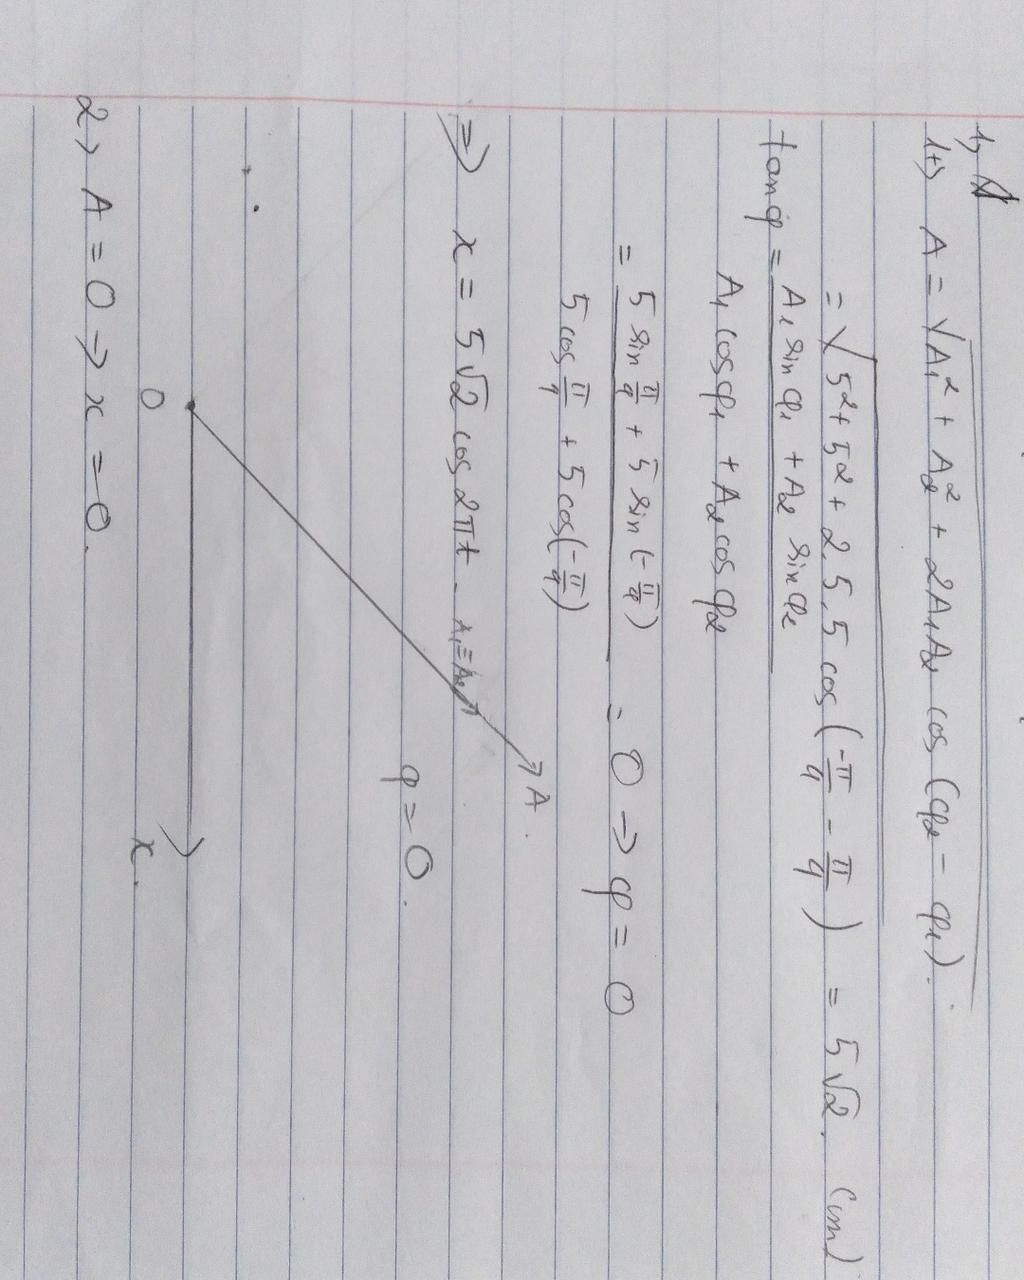 1,
1+) A = √A₁² + A₂² + 2A₁A₂ cos (φ₂ - φ₁).
= √5² + 5² + 2.5.5 cos (-π/4 - π/4) = 5√2. (cm)
tan φ = A₁ sin φ₁ + A₂ sin φ₂
A₁ cos φ₁ + A₂ cos φ₂
= 5 sin π/4 + 5 sin (-π/4) = 0 → φ = 0
5 cos π/4 + 5 cos (-π/4)
⇒ x = 5√2 cos 2πt.
A
A₁ ≡ A₂
φ = 0.
O
x.
2, A = 0 → x = 0.